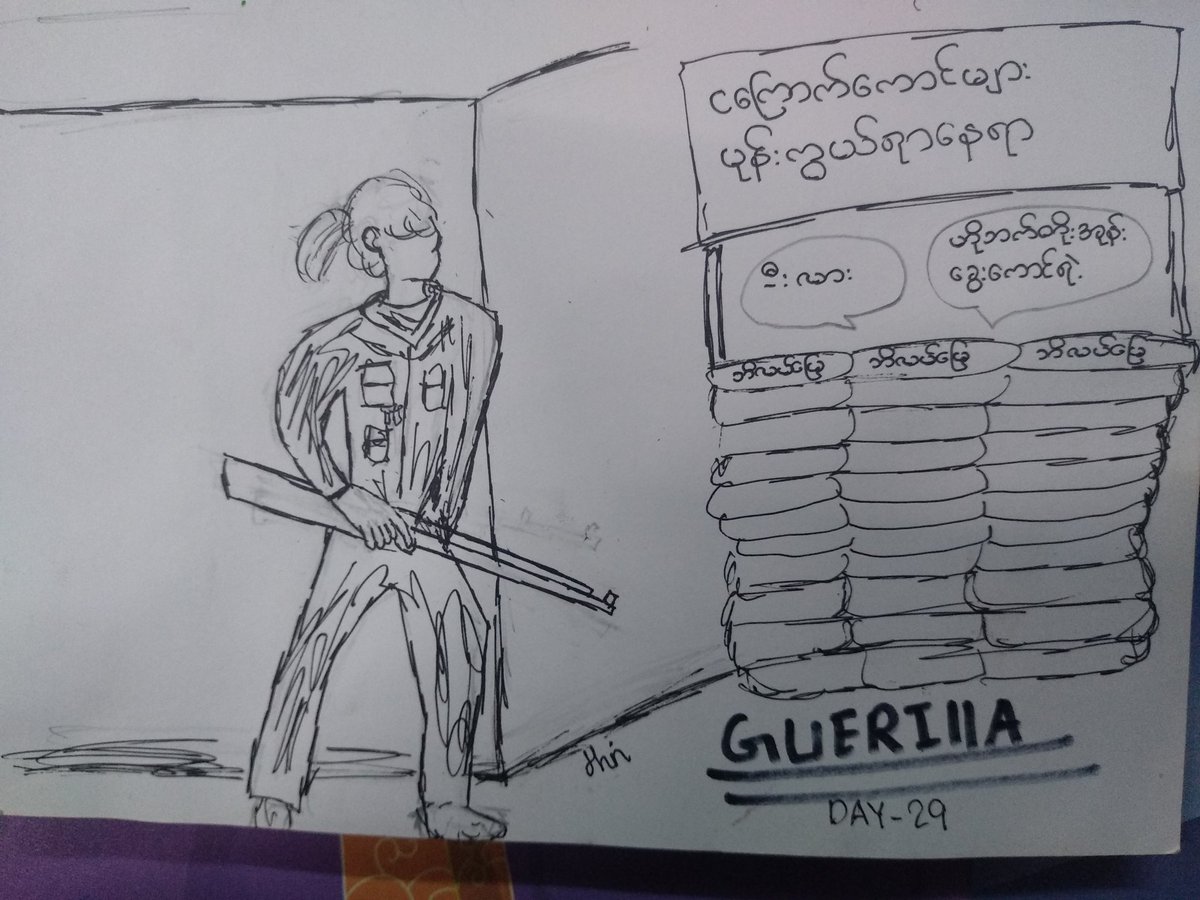 ငကြောက်ကောင်များ
ပုန်းကွယ်ရာနေရာ
မီးလား
ဟိုဘက်တိုးအုန်း
ခွေးကောင်ရဲ့
ဘိလပ်မြေ ဘိလပ်မြေ ဘိလပ်မြေ
GUERIllA
DAY-29